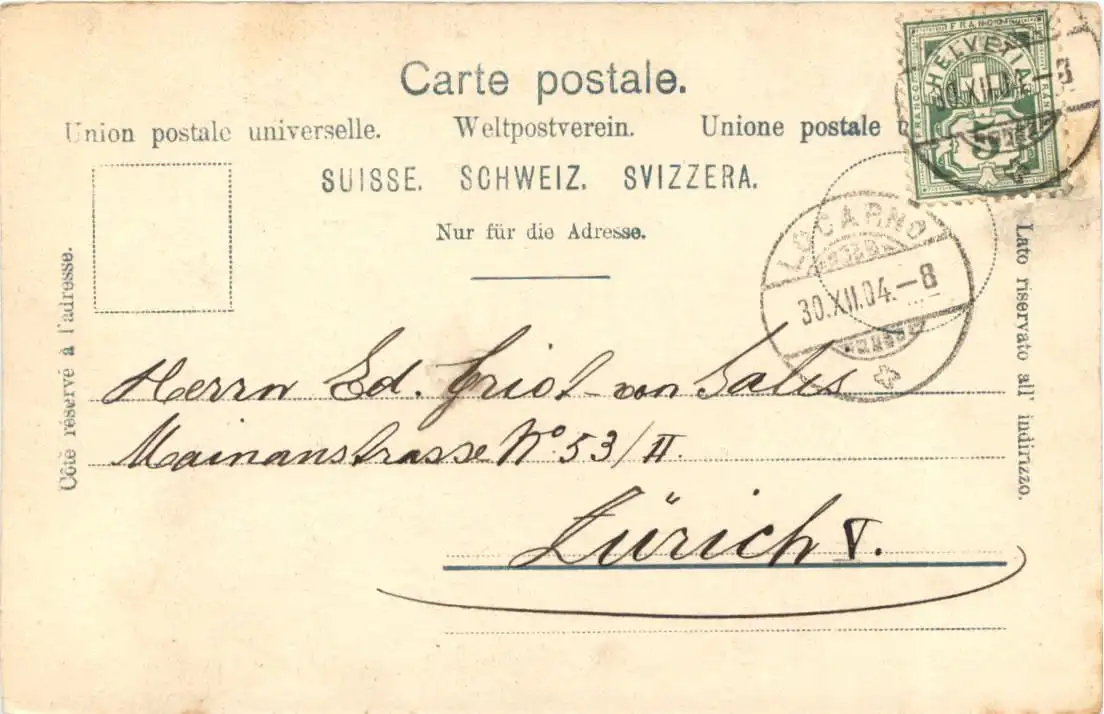 Carte postale.
Union postale universelle. Weltpostverein. Unione postale
SUISSE. SCHWEIZ. SVIZZERA.
Nur für die Adresse.
Côté réservé à l'adresse.
Lato riservato all' indirizzo.
FRANCO
HELVETIA
5
30.XII.04.-8
LOCARNO
30.XII.04.-8
Herrn Ed. Griot-von Salis
Mainaustrasse No 53/II.
Zürich V.